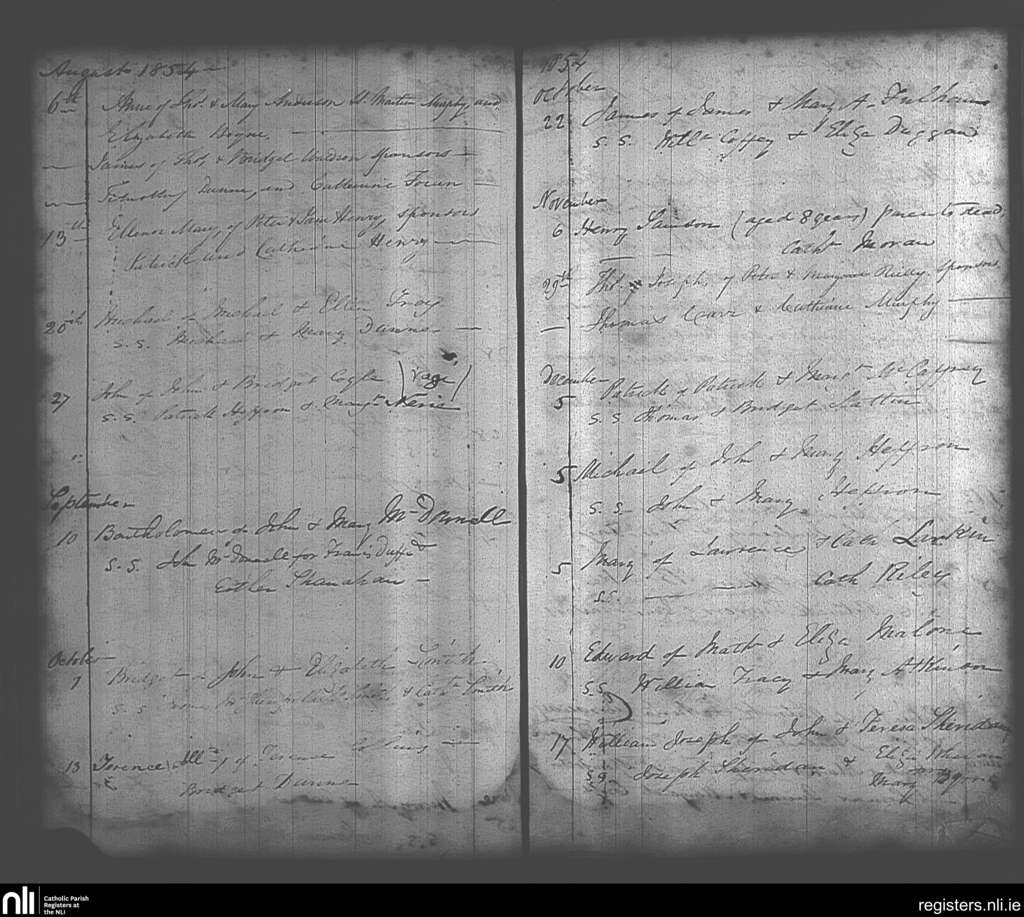 August 1854
6th Anne of Thos. & Mary Anderson Ss. Martin Murphy and
Elizabeth Hogne
James of Thos. & Bridget sponsors
Timothy Dunne, and Catherine
13th Ellenor Mary, of Peter & Jane Henry, sponsors
Patrick and Catherine Henry
20th Michael of Michael & Ellen Tracy
S. S. Michael & Mary Dunne
27 John of John & Bridget Coyle
S. S. Patrick Heffron & Margt.
September
10 Bartholomew of John & Mary McDonnell
S. S. John McDonnell for Francis Duffy &
Esther Shanahan
October
7 Bridget of John & Elizabeth Smith
S. S. & Cath. Smith
13 Terence of Terence
Bridget Dunne
1854
October
22 James of James & Mary A. Fulham
S. S. Willm. Coffey & Eliza Duggan
November
6 Henry Samson (aged 8 years) parents dead,
Cath. Moran
29th Thos. Joseph, of Peter & Margaret Reilly sponsors
Thomas Carr & Catherine Murphy
December
5 Patrick of Patrick & Margt. McCaffrey
S. S. Thomas & Bridget
5 Michael of John & Mary Heffron
S. S. John & Mary Heffron
5 Mary of Lawrence & Cath Larkin
S.S. Cath Riley
10 Edward of Math & Eliza Malone
S. S. William Tracy & Mary Atkinson
17 William Joseph of John & Teresa Sheridan
S. S. Joseph Sheridan & Eliza
Mary Byrne
nli
Catholic Parish
Registers at
the NLI
registers.nli.ie